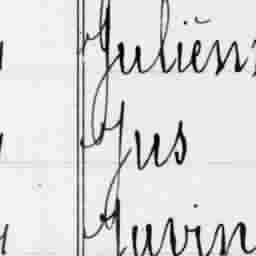 Julien
Jus
Juvin